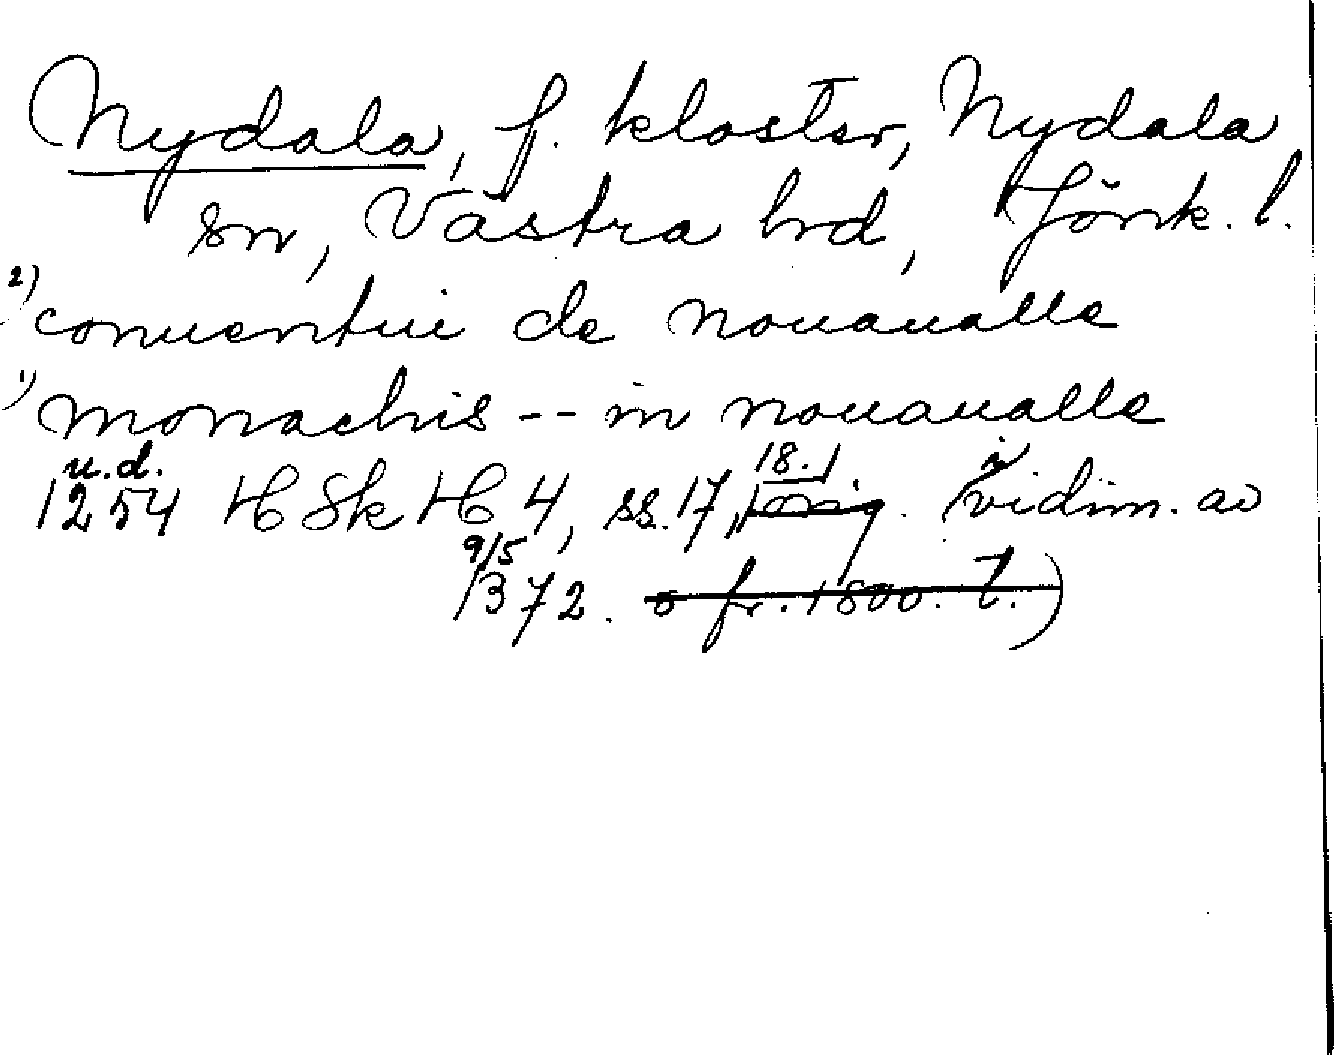 Nydala, f. kloster, Nydala
sn, Västra hrd, Jönk. l.
2) conuentui de nouaualle
1) monachis -- in nouaualle
u.d. 18. i
1254 HSkH 4, ss. 17, vidim. av
9/5
1372. o fr. 1800. t.)